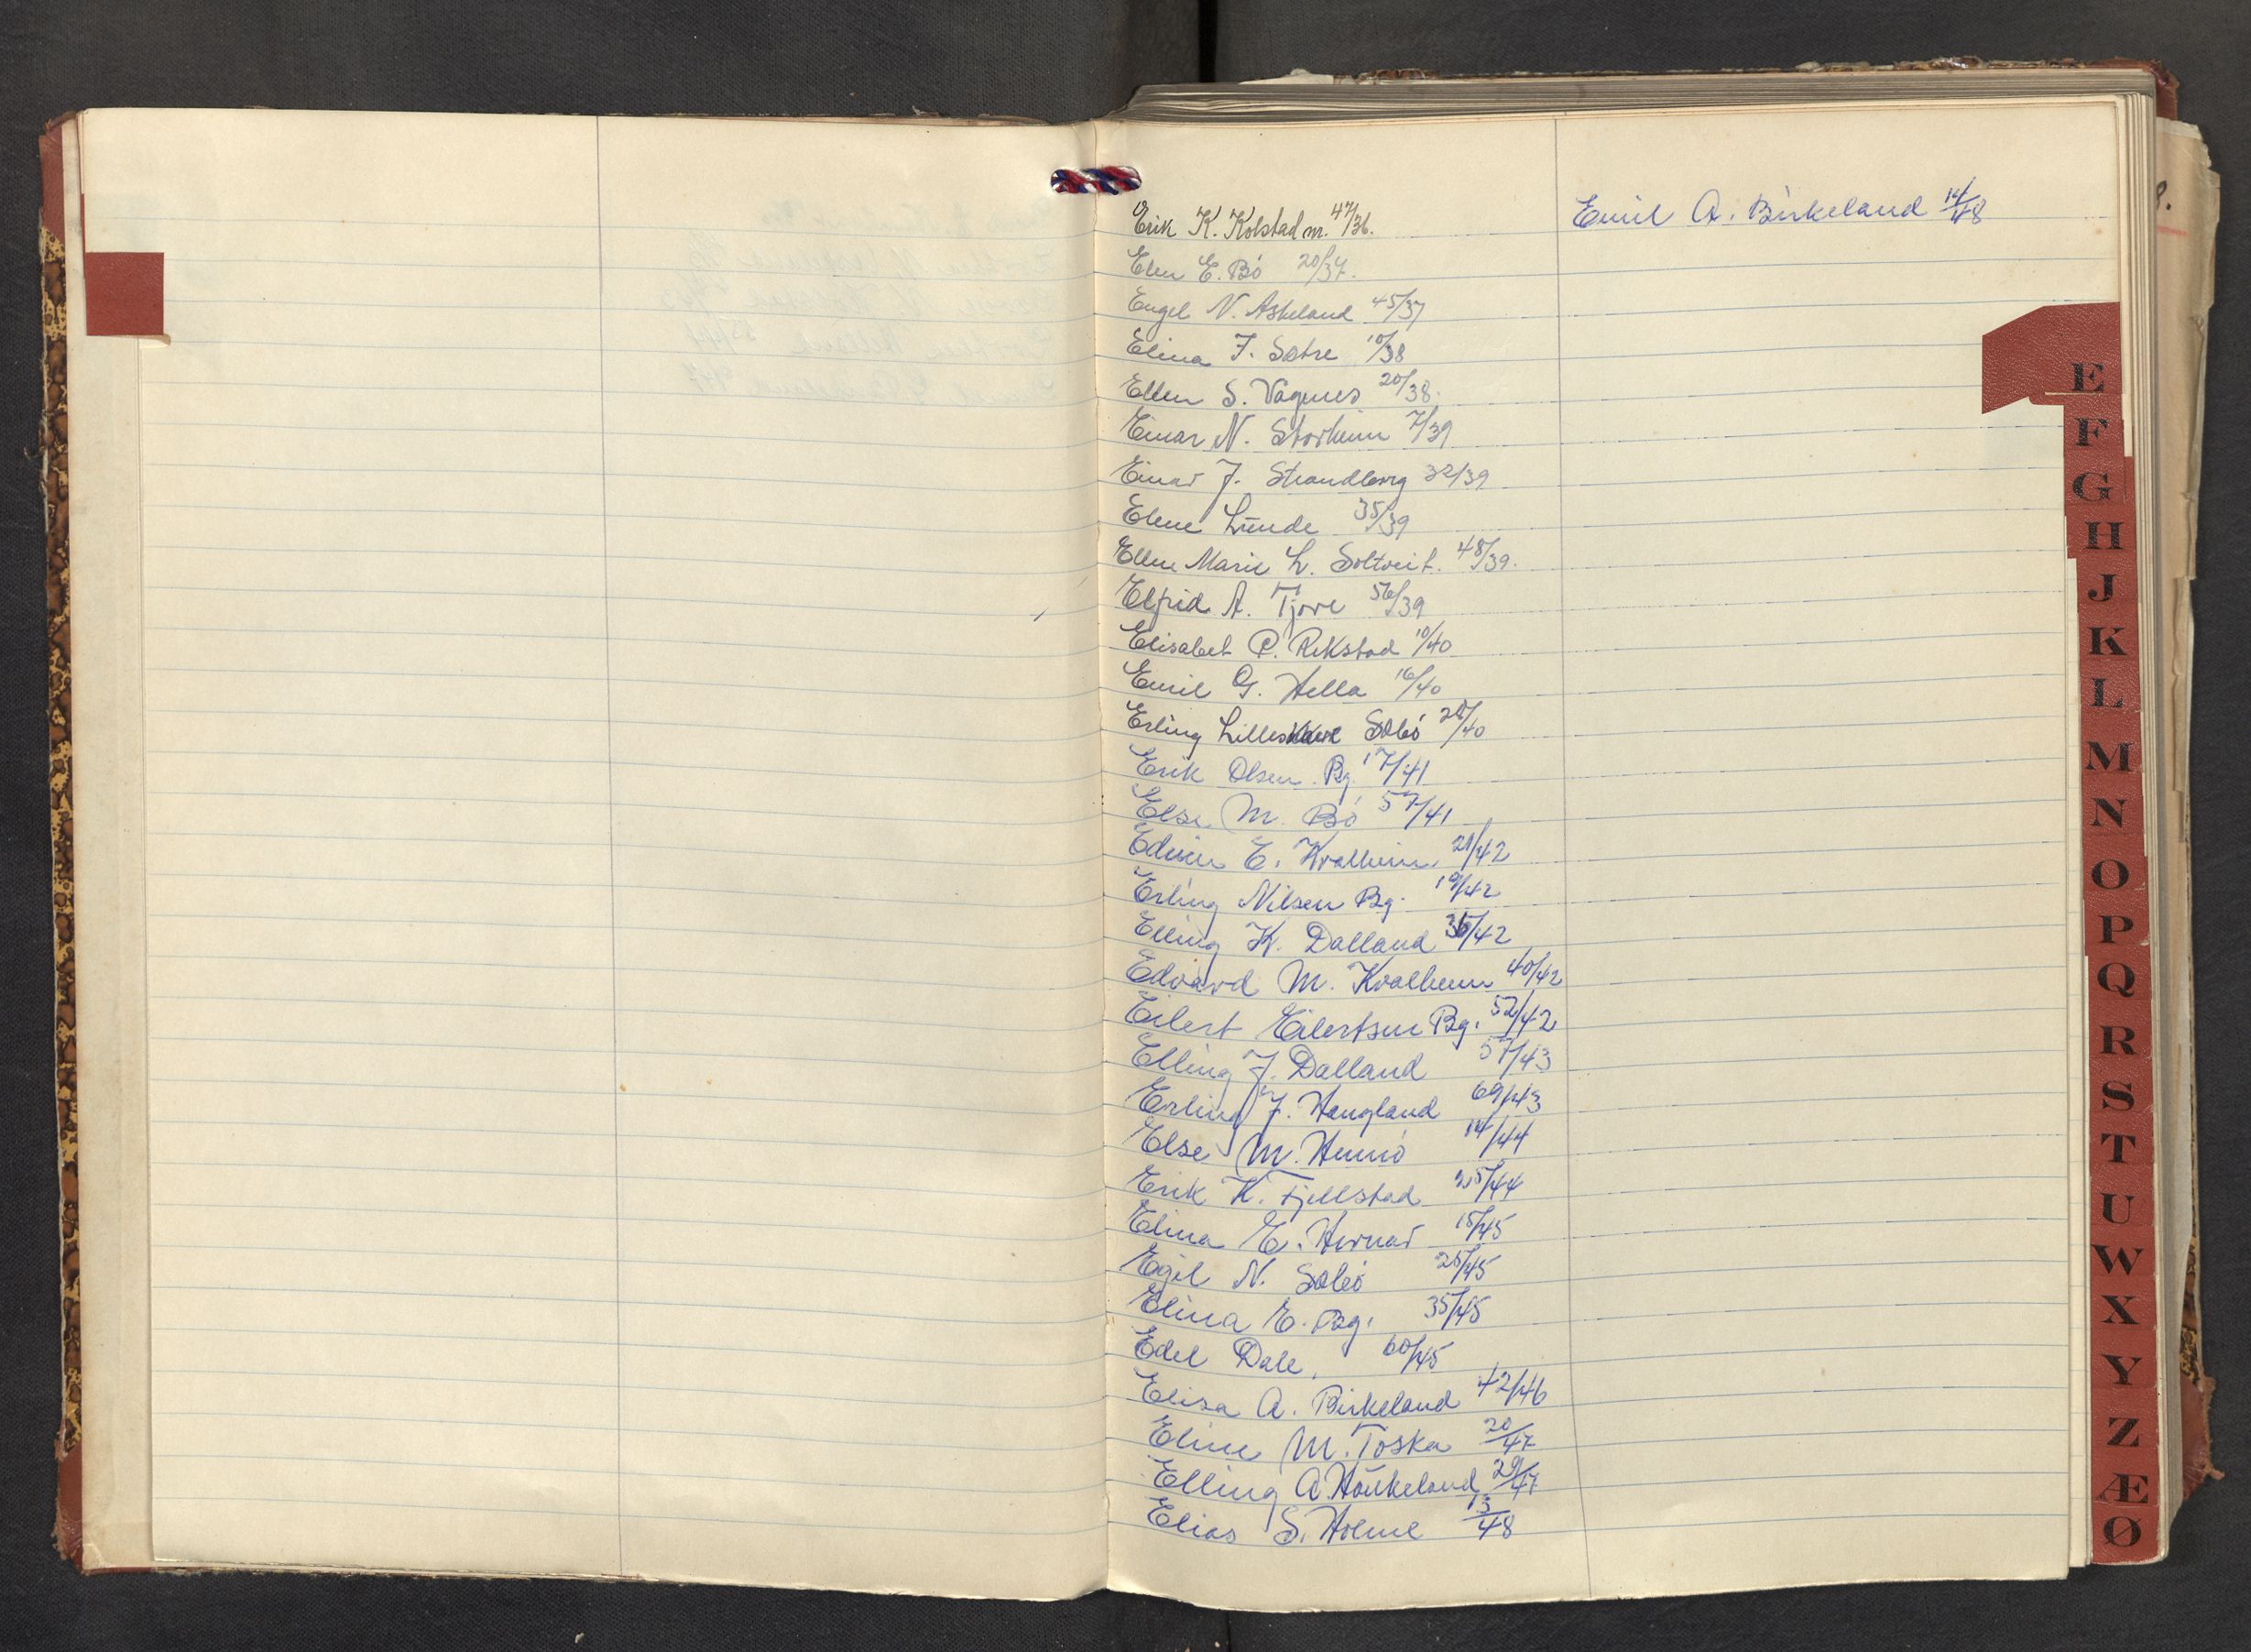 Erik K. Kolstad nr. 47/36.
Elen E. Bö 20/37.
Engel N. Askeland 45/37
Elina J. Sætre 10/38
Ellen S. Vågenes 20/38.
Einar N. Storheim 7/39
Einar J. Strandberg 32/39
Elene Lunde 35/39
Ellen Marie L. Soltveit. 48/39.
Elfrid A. Tjore 56/39
Elisabet P. Rekstad 10/40
Emil G. Hella 16/40
Erling Lilleskare Sæbö 28/40
Erik Olsen Bg. 17/41
Else M. Bö 57/41
Edvin E. Kvalheim 21/42
Erling Nilsen Bg. 19/42
Elling K. Dalland 36/42
Edvard M. Kvalheim 40/42
Eilert Eilertsen Bg. 52/42
Elling J. Dalland 57/43
Erling J. Haugland 69/43
Else M. Hennö 14/44
Erik K. Fjellstad 25/44
Elina E. Hernar 15/45
Egil N. Sæbö 25/45
Elina E. Bg. 35/45
Edel Dale, 60/45
Elisa A. Birkeland 42/46
Eline M. Toska 20/47
Elling A. Haukeland 29/47
Elias S. Holme 13/48
Emil A. Birkeland 14/48
E
F
G
H
J
K
L
M
N
O
P
Q
R
S
T
U
W
X
Y
Z
Æ
Ø